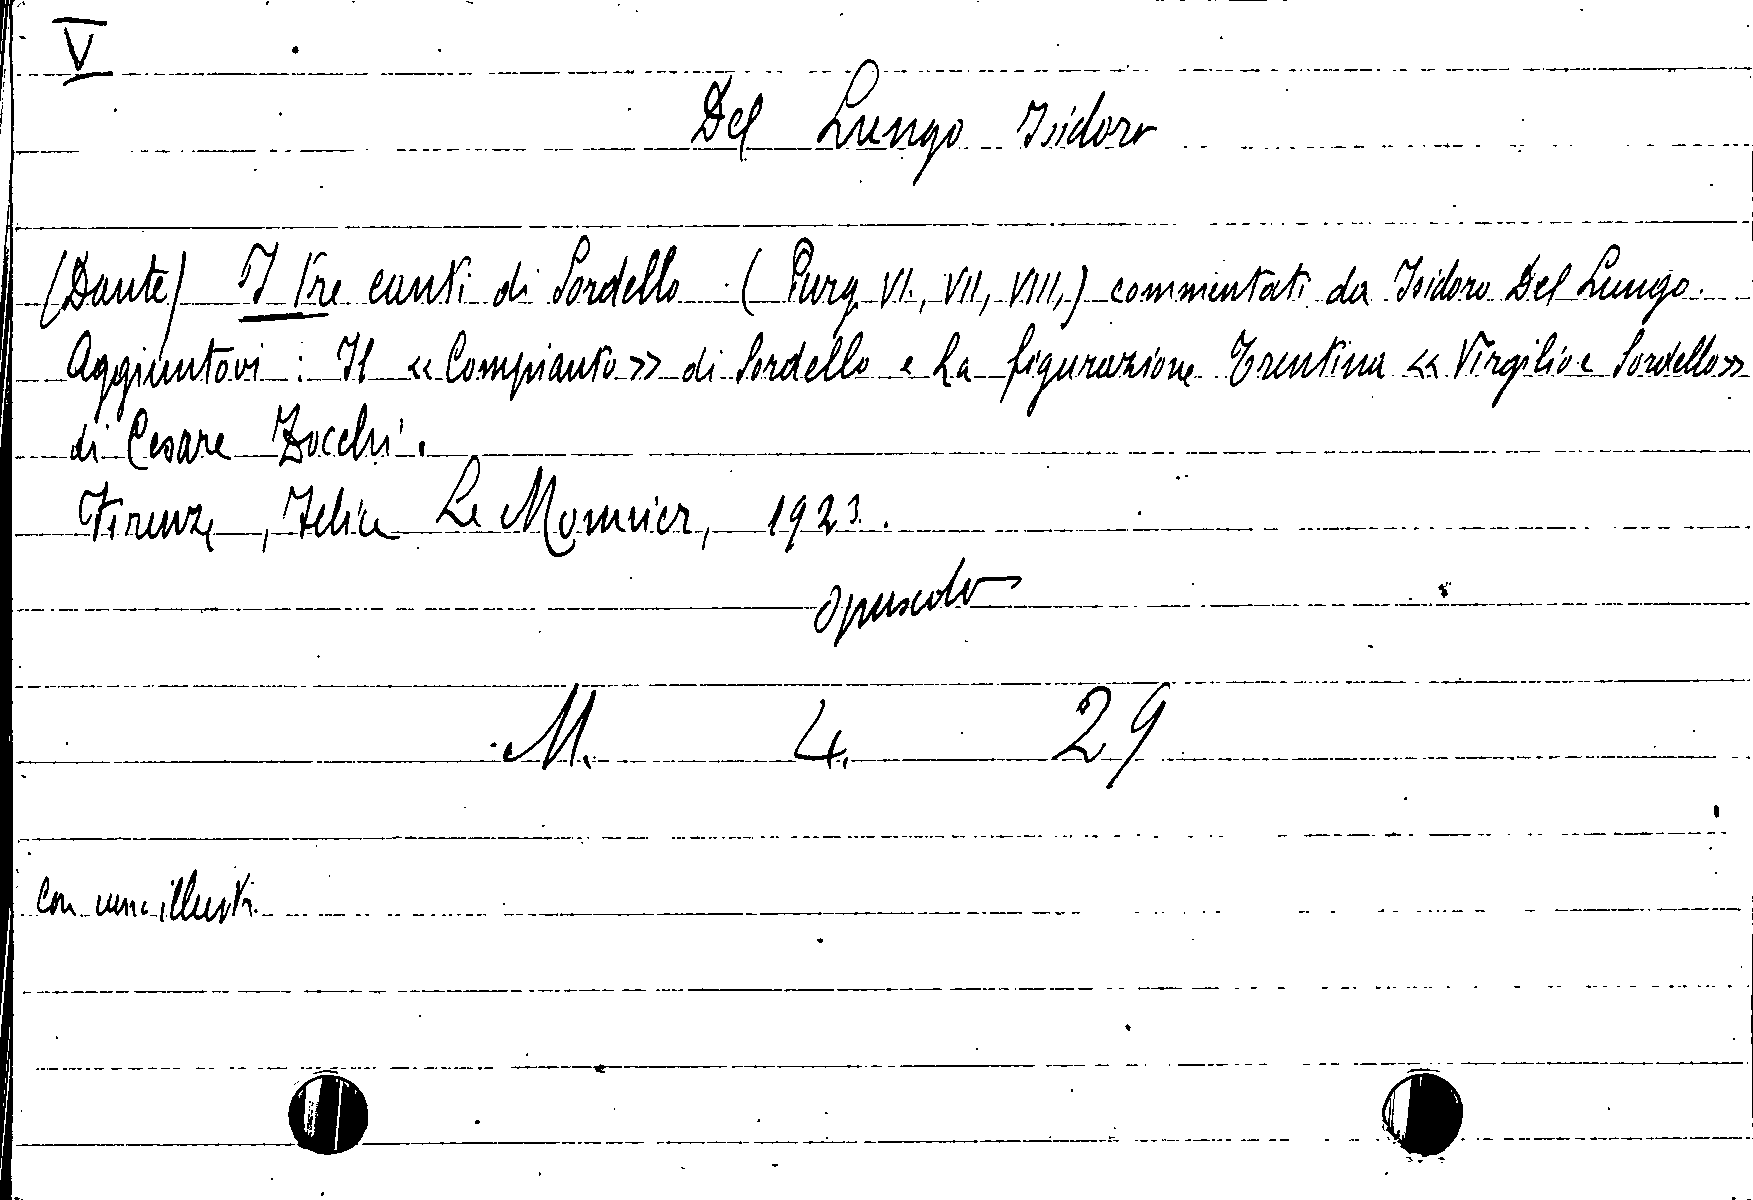 V
Del Lungo Isidoro
(Dante) I tre canti di Sordello (Purg. VI., VII, VIII,) commentati da Isidoro Del Lungo.
Aggiuntovi : Il «Compianto» di Sordello e La figurazione Trentina «Virgilio e Sordello»
di Cesare Zocchi.
Firenze, Felice Le Monnier, 1923.
opuscolo
M. 4. 29
Con una illustr.